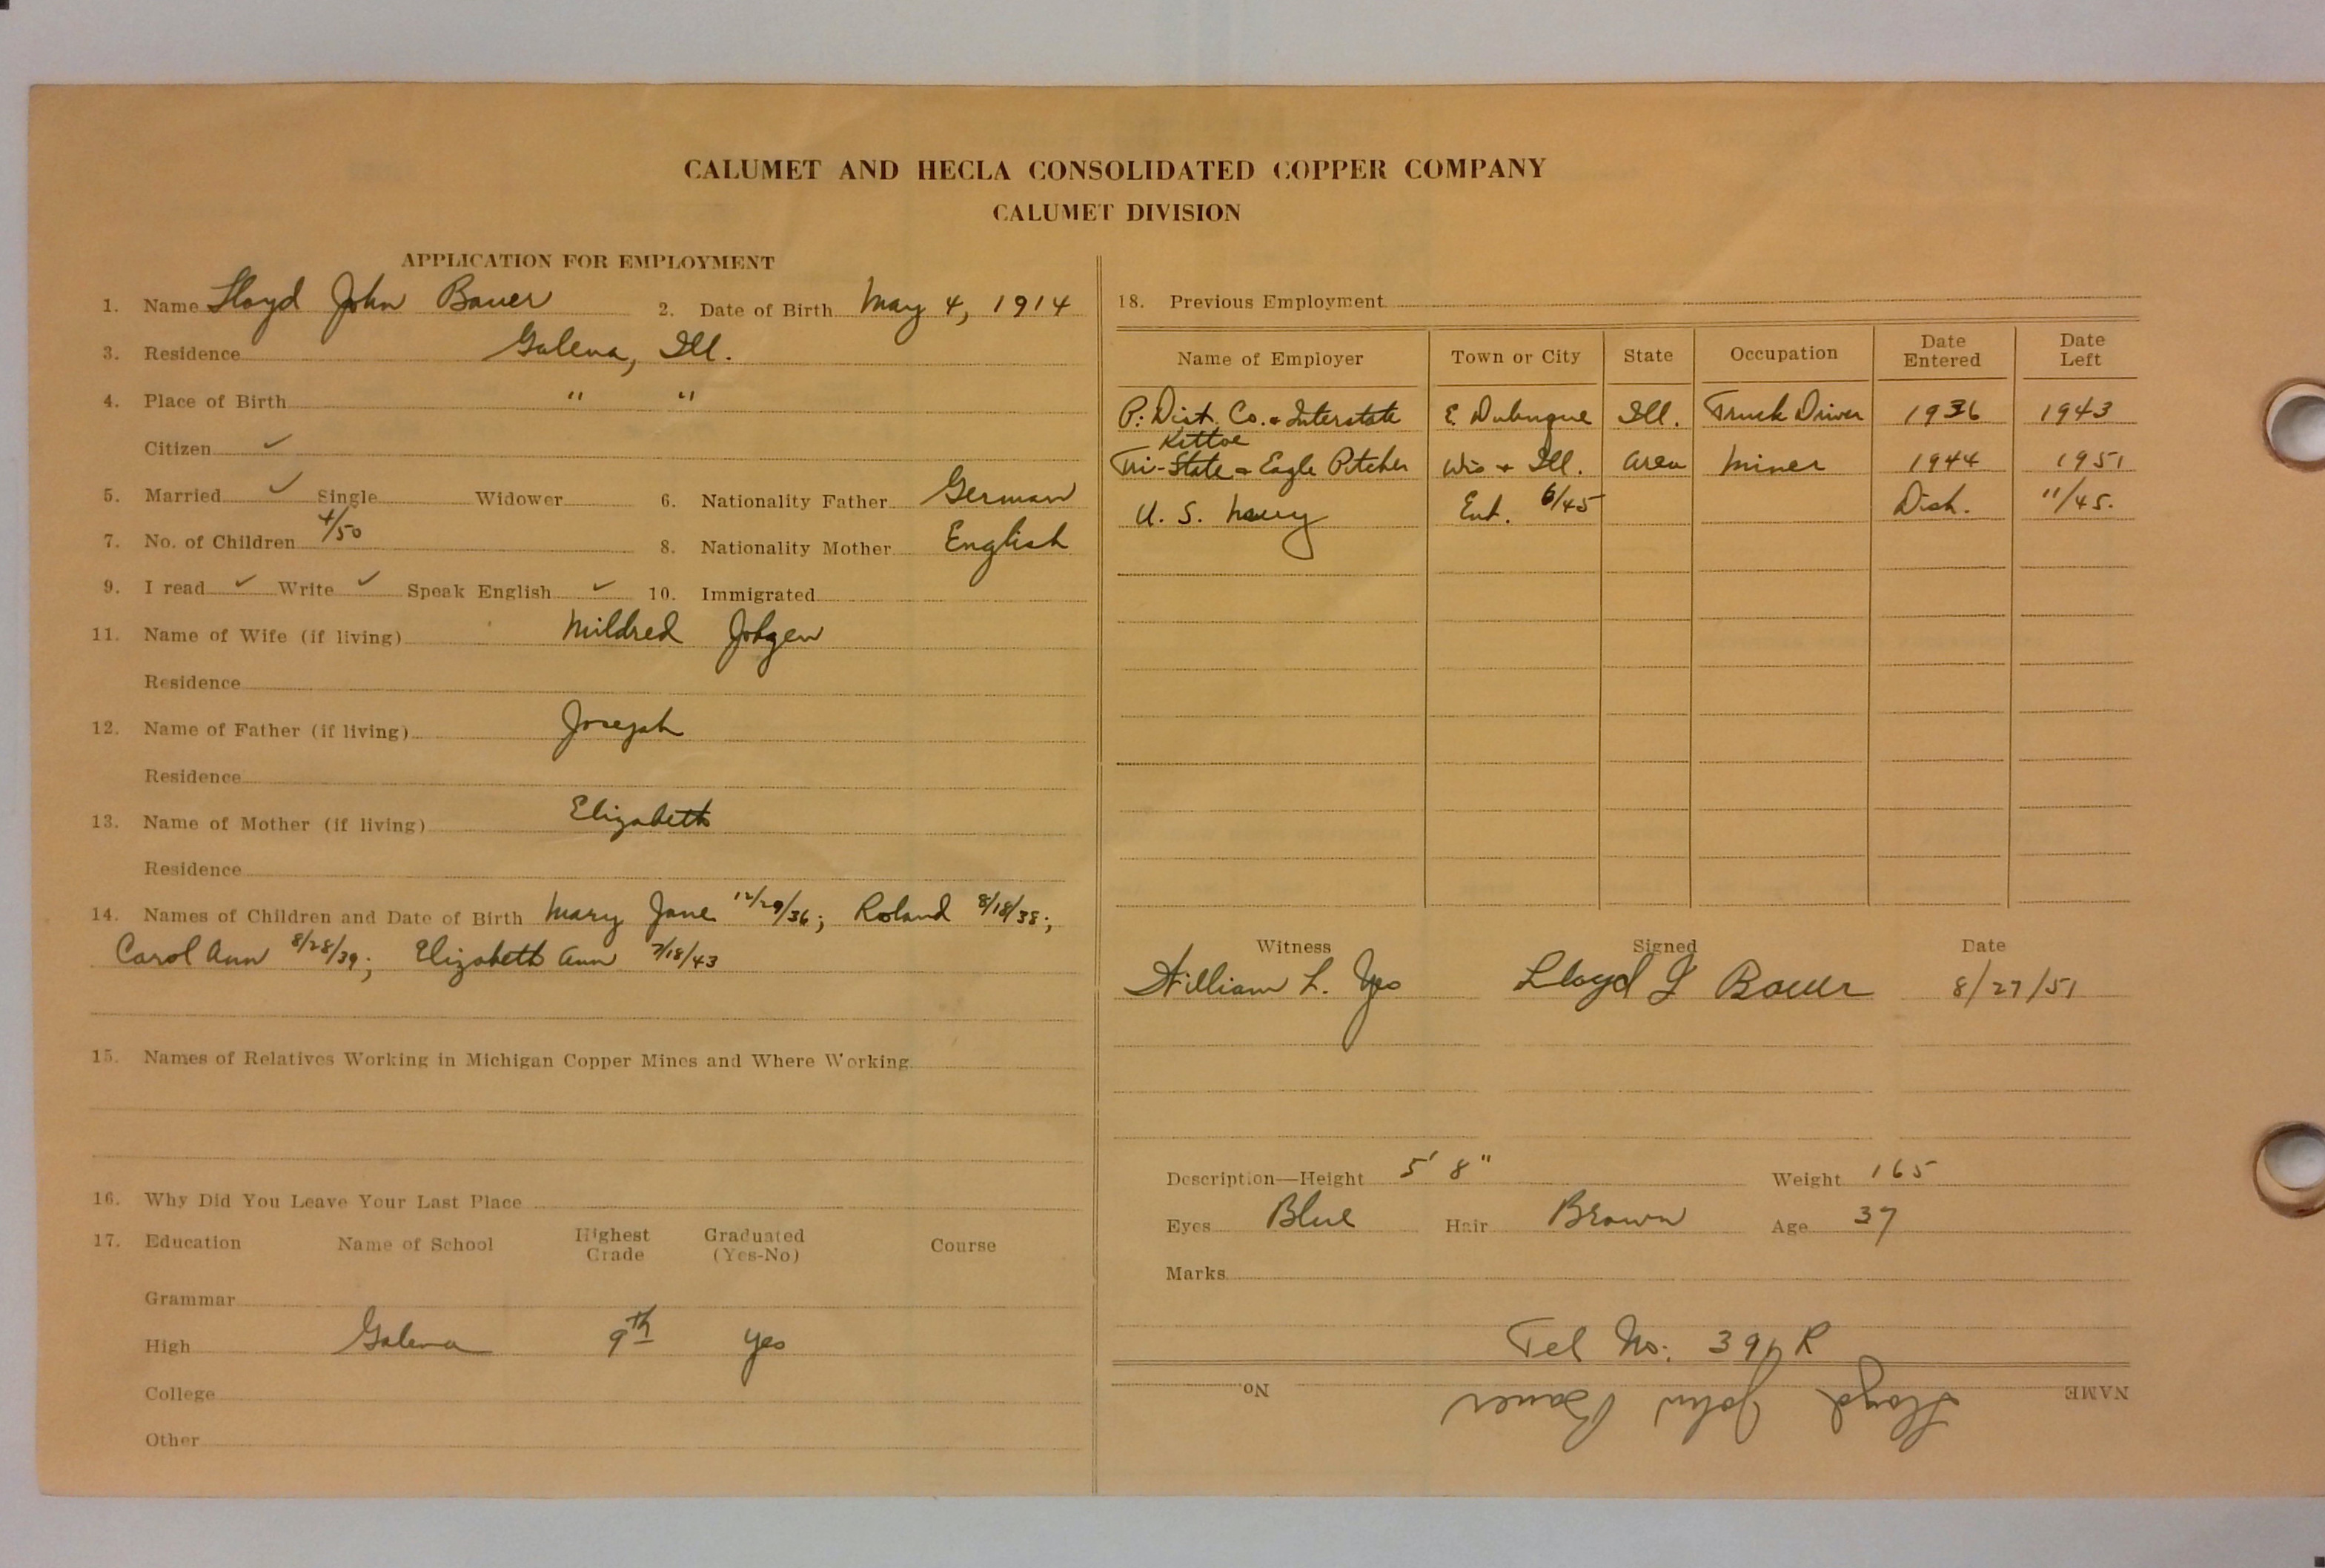 CALUMET AND HECLA CONSOLIDATED COPPER COMPANY
CALUMET DIVISION
APPLICATION FOR EMPLOYMENT
1. Name Lloyd John Bauer 2. Date of Birth May 4, 1914
3. Residence Galena, Ill.
4. Place of Birth " "
Citizen ✓
5. Married ✓ Single Widower 6. Nationality Father German
7. No. of Children 4/50 8. Nationality Mother English
9. I read ✓ Write ✓ Speak English ✓ 10. Immigrated
11. Name of Wife (if living) Mildred
Residence
12. Name of Father (if living) Joseph
Residence
13. Name of Mother (if living) Elizabeth
Residence
14. Names of Children and Date of Birth Mary Jane 12/29/36; Roland 8/18/38;
Carol Ann 8/28/39; Elizabeth Ann 7/18/43
15. Names of Relatives Working in Michigan Copper Mines and Where Working
16. Why Did You Leave Your Last Place
17. Education Name of School Highest Grade Graduated (Yes-No) Course
Grammar
High Galena 9th Yes
College
Other
18. Previous Employment
Name of Employer Town or City State Occupation Date Entered Date Left
P. Dist. Co. & Interstate E. Dubuque Ill. Truck Driver 1936 1943
Kittoe
Tri-State & Eagle Pitcher Wis & Ill. area Miner 1944 1951
U. S. Navy Ent. 6/45 Disch. 11/45.
Witness Signed Date
William L. Lloyd J Bauer 8/27/51
Description—Height 5' 8" Weight 165
Eyes Blue Hair Brown Age 37
Marks
Tel No. R
NAME Lloyd John Bauer No.